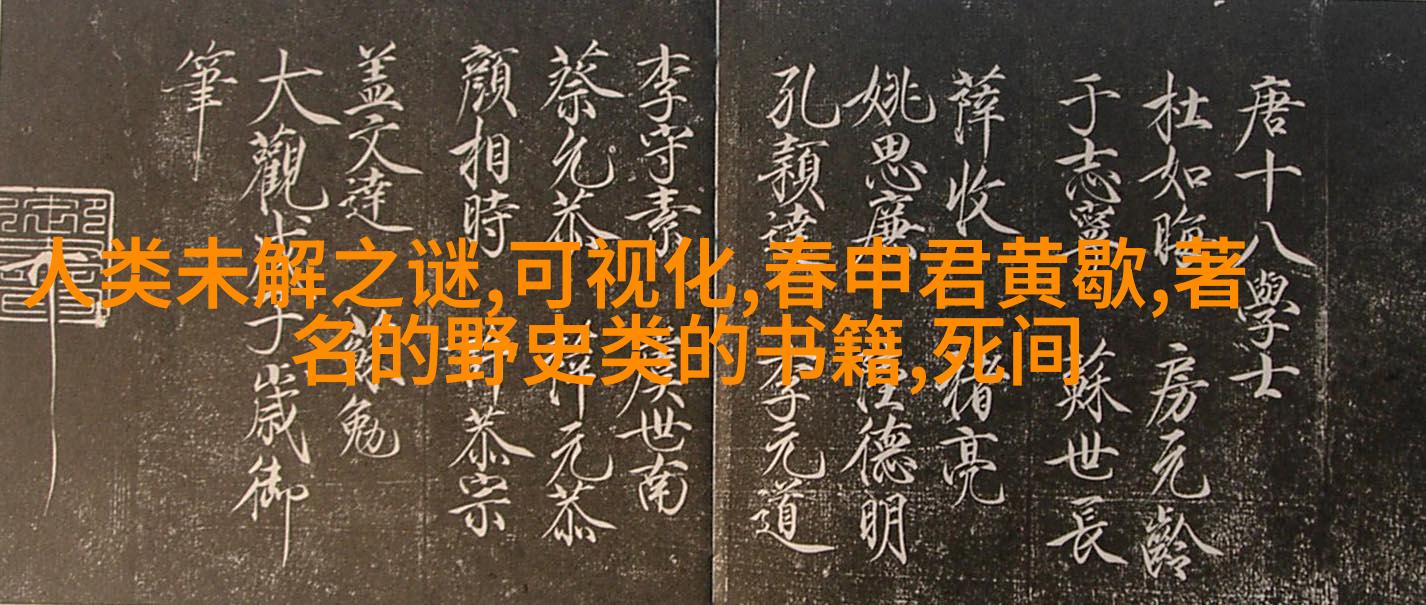 人类未解之谜,可视化,春申君黄歇,著
名的野史类的书籍,死间
唐十八學士
杜如晦 房元齡
于志寧 蘇世長
薛收 褚亮
姚思廉 陸德明
孔穎達 李元道
李守素 虞世南
蔡允恭 元恭
顏相時 恭宗
盖文達 勉
大觀戊子歲御
筆